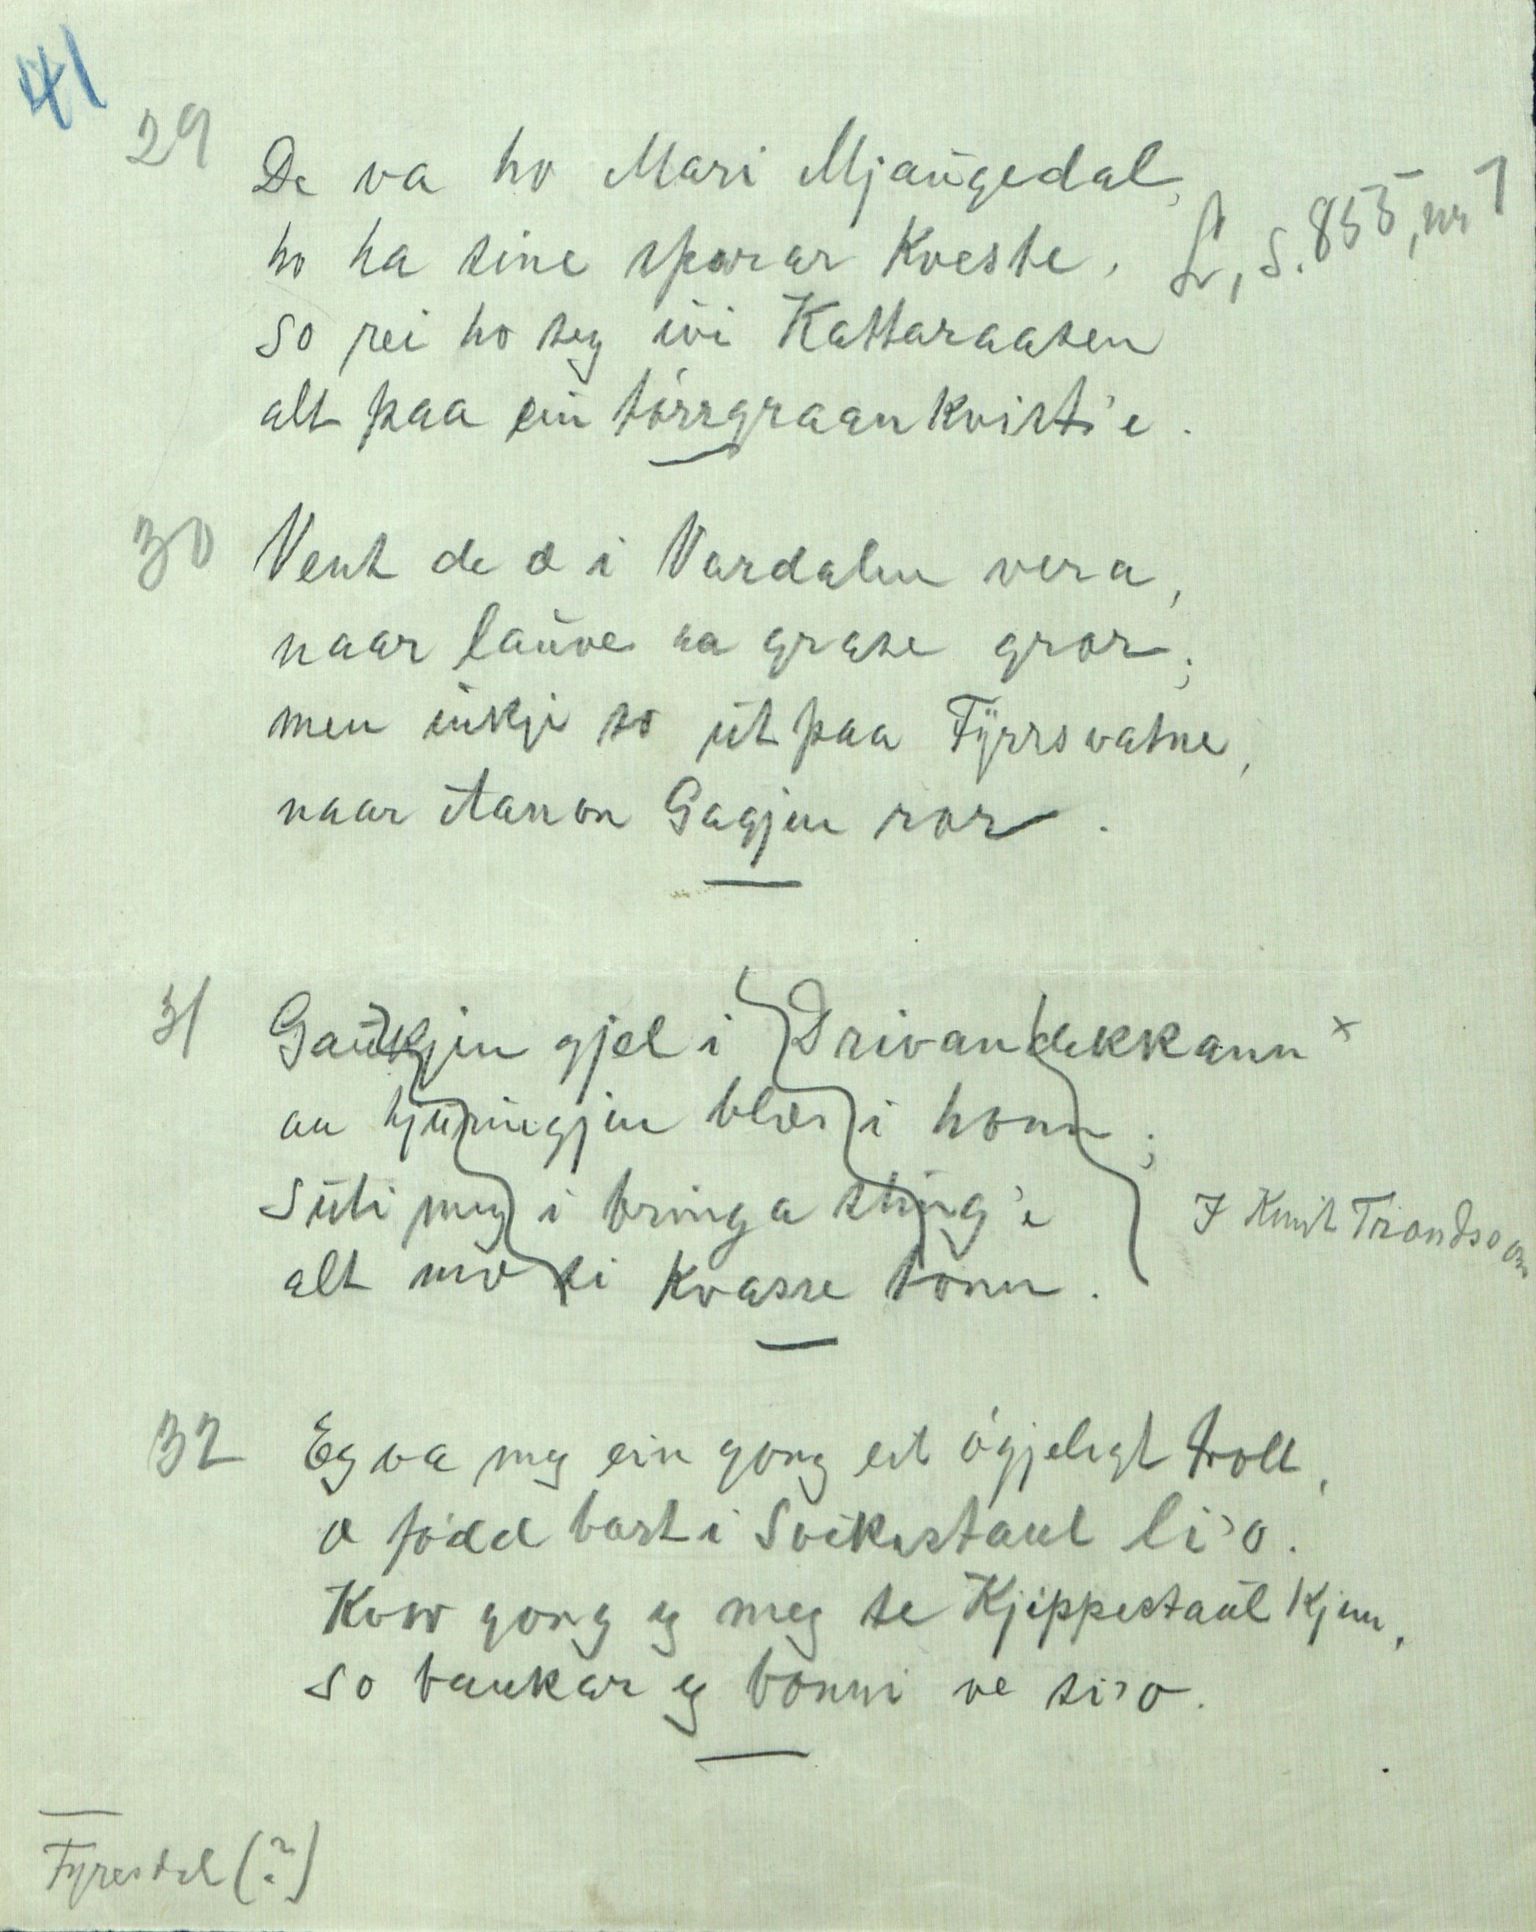 41
29 De va ho Mari Mjaugedal,
ho ha sine sporar Kveste,
L, s. 855, nr 1
so rei ho seg ivi Kattaraasen
alt paa ein tórrgraankvist'e.
30 Vent de æ i Vardalen vera,
naar lauve aa grase gror;
men inkje so út paa Fyrrsvatne,
naar Aanon Gagjen ror.
31 Gaukjen gjel i Drivandekkann x
aa hjuringjen blæs i honn;
Súti meg i bringa sting'e
alt mæ si kvasse tonn.
I Knut Trondson
32 Eg va meg ein gong eit ógjeligt troll,
æ fódd bart i Svikestaul li'o.
Kvar gong eg meg te Kjippestaul kjem,
so baukar eg bonni ve si'o.
Fyresdal (?)